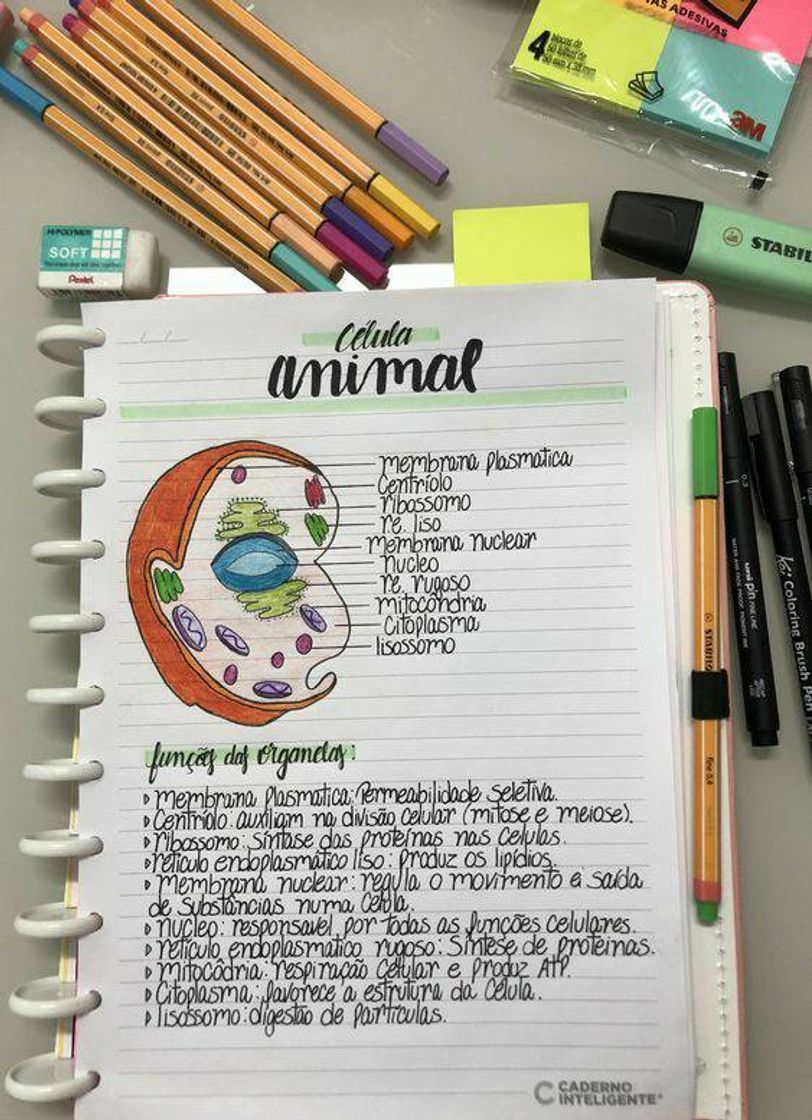 NOTAS ADESIVAS
4 blocos de
50 folhas de
38 mm x 50 mm
3M
HI-POLYMER
SOFT
Pentel
STABIL
Célula
animal
membrana plasmatica
Centríolo
ribossomo
re. liso
membrana nuclear
nucleo
re. rugoso
mitocôndria
Citoplasma
lisossomo
funções das organelas:
Membrana plasmatica: Permeabilidade seletiva.
Centríolo: auxiliam na divisão celular (mitose e meiose).
ribossomo: síntase das proteínas nas células.
retículo endoplasmático liso: produz os lipídios.
Membrana nuclear: regula o movimento e saída
de substâncias numa célula.
nucleo: responsavel por todas as funções celulares.
retículo endoplasmatico rugoso: síntese de proteínas.
mitocôdria: respiração celular e produz ATP.
Citoplasma: favorece a estrutura da célula.
lisossomo: digestão de partículas.
CADERNO
INTELIGENTE
STABILO
fine 0,4
0.3
uni pin FINE LINE
Koi Coloring Brush Pen